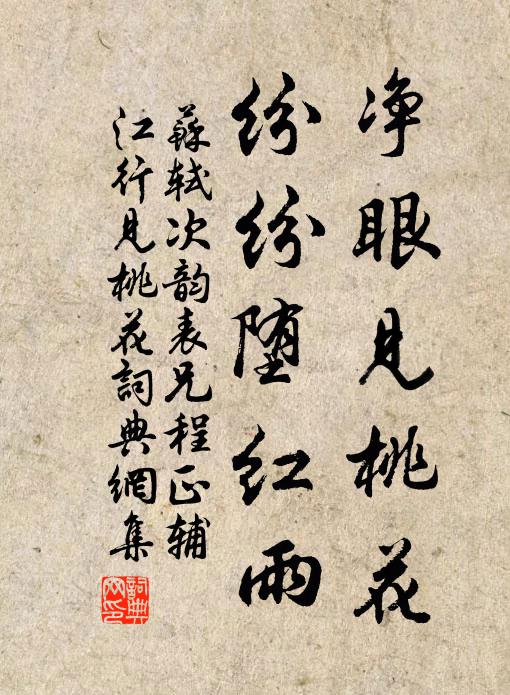 净眼見桃花
纷纷堕红雨
蘇轼次韵表兄程正辅
江行見桃花詞典網集
詞典網印